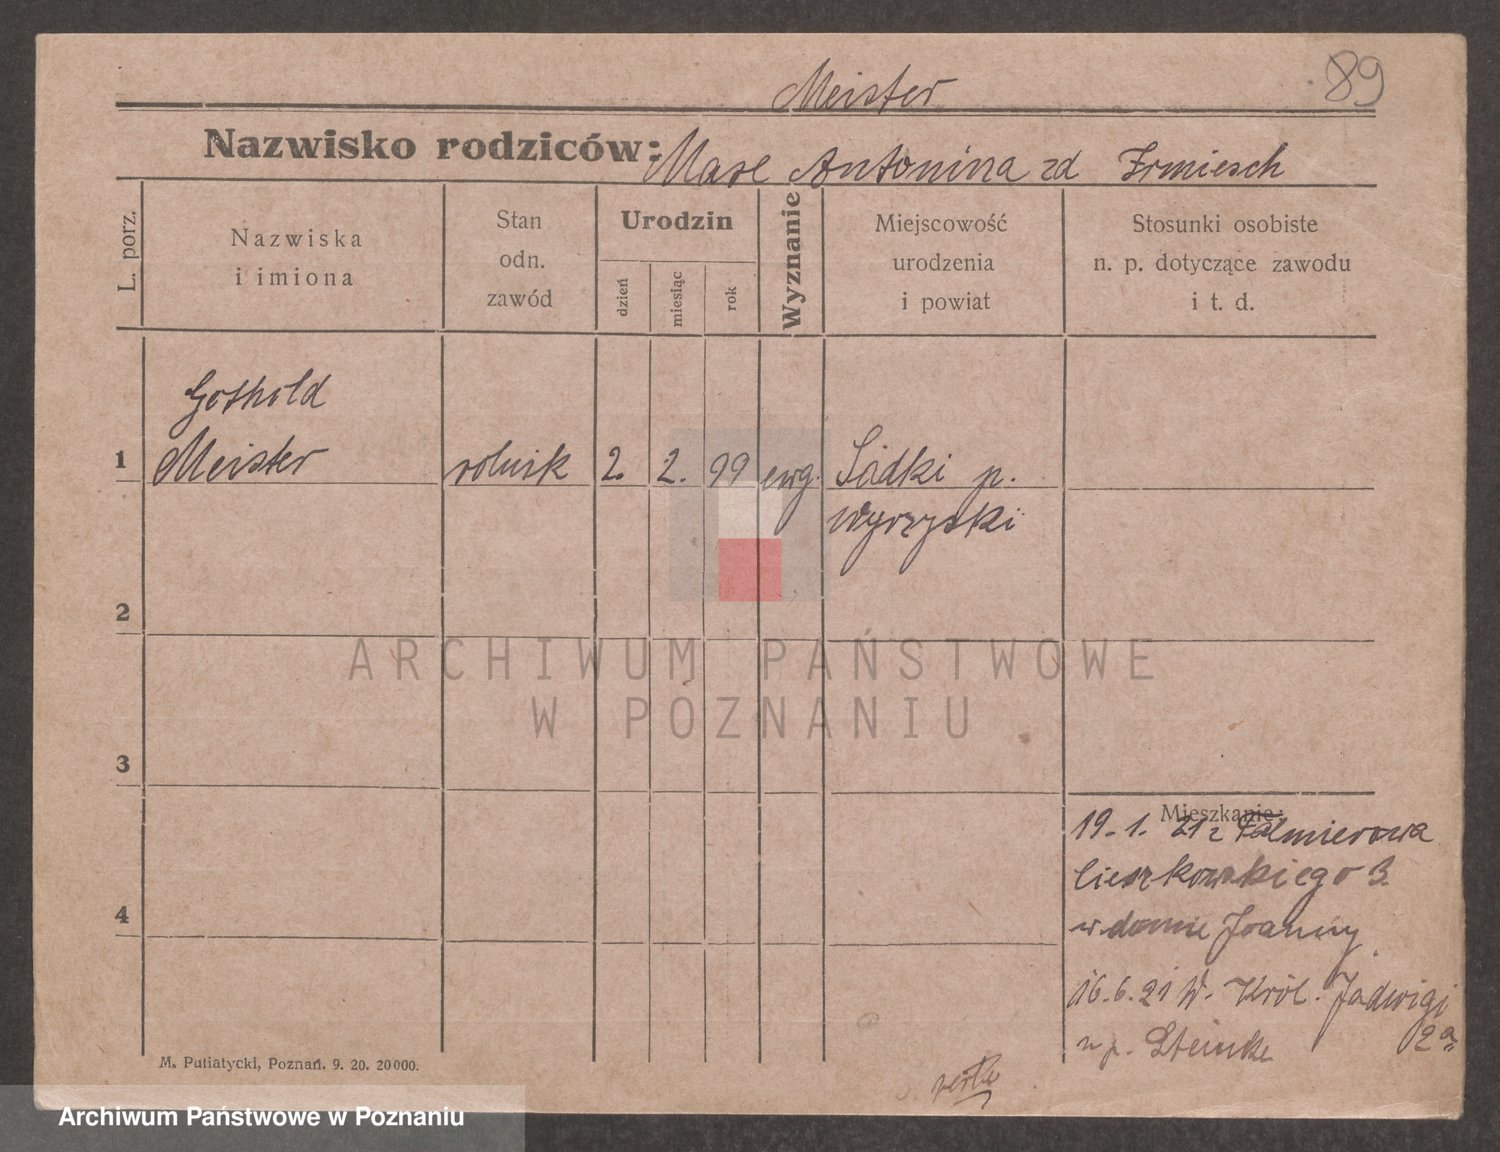 89
Meister
Nazwisko rodziców: Marl Antonina zd Irmiesch
L. porz.
Nazwiska
i imiona
Stan
odn.
zawód
Urodzin
dzień
miesiąc
rok
Wyznanie
Miejscowość
urodzenia
i powiat
Stosunki osobiste
n. p. dotyczące zawodu
i t. d.
Gothold
1 Meister rolnik 2. 2. 99 ewg. Sadki p.
wyrzyski
2
ARCHIWUM PAŃSTWOWE
W POZNANIU
3
Mieszkanie:
19. 1. 21 z Palmierowa
Cieszkowskiego 3.
4
w domie Joanny
16. 6. 21 W. Król. Jadwigi
2a
n p. Steinke
M. Putiatycki, Poznań. 9. 20. 20 000.
Archiwum Państwowe w Poznaniu